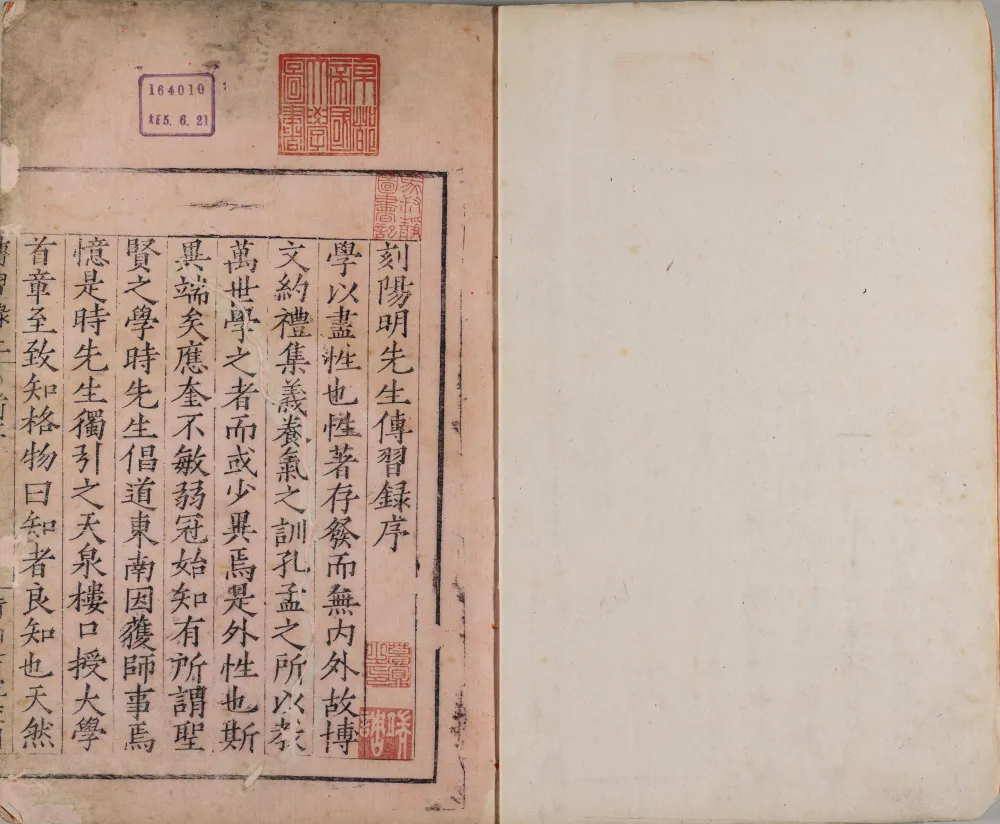 164010
大正5. 6. 21
京都
帝國
大學
圖書
刻陽明先生傳習録序
學以盡性也性著存發而無内外故博
文約禮集義養氣之訓孔孟之所以教
萬世學之者而或少異焉是外性也斯
異端矣應奎不敏弱冠始知有所謂聖
賢之學時先生倡道東南因獲師事焉
憶是時先生獨引之天泉樓口授大學
首章至致知格物曰知者良知也天然
傳習録